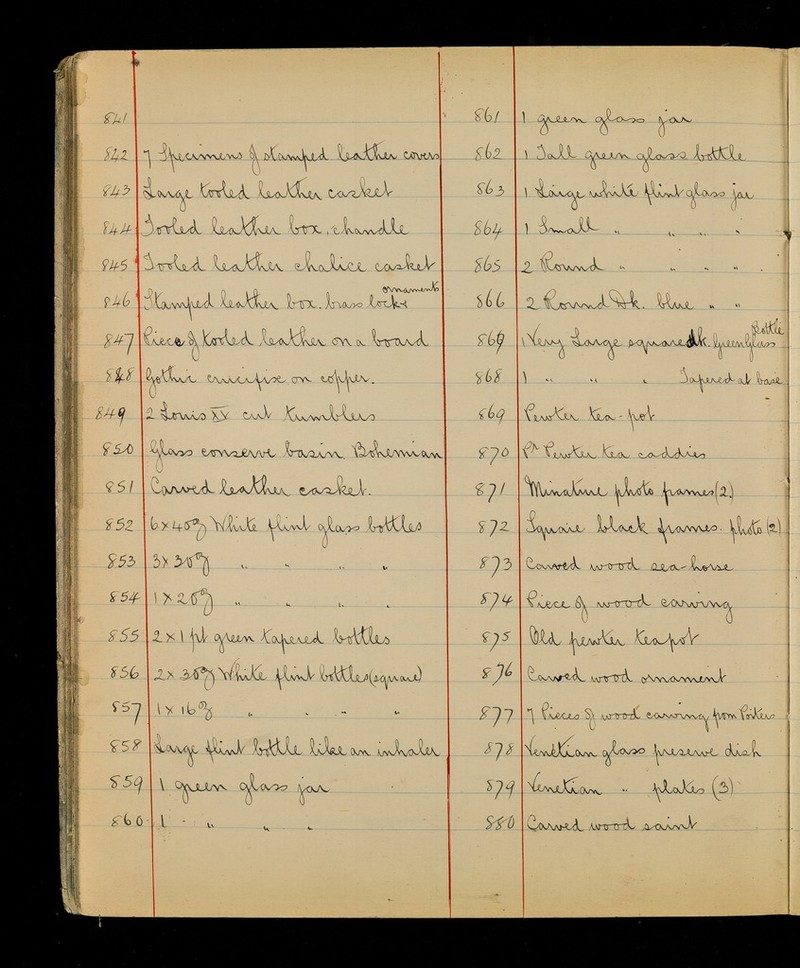 841
842 7 Specimens of stamped leather covers
843 Large tooled leather casket
844 Tooled leather box, & handle
845 Tooled leather chalice casket
846 Stamped leather box. brass locks ornaments
847 Piece of tooled leather on a board
848 Gothic crucifixe on copper.
849 2 Louis XV cut tumblers
850 Glass conserve basin, Bohemian
851 Carved leather casket.
852 6 x 40oz White flint glass bottles
853 3 x 30oz " " " "
854 1 x 20oz " " " "
855 2 x 1 pt green tapered bottles
856 2 x 30oz White flint bottles (square)
857 1 x 16oz " " " "
858 Large flint bottle like an inhaler
859 1 green glass jar
860 1 " " " "
861 1 green glass jar
862 1 Tall green glass bottle
863 1 Large white flint glass jar
864 1 Small " " " "
865 2 Round " " " "
866 2 Round Dk. blue " "
867 1 Very Large square dk. green glass Bottle
868 1 " " " Tapered at base
869 Pewter tea-pot
870 Pr Pewter tea caddies
871 Miniature photo frames (2.)
872 Square black frames. photo (2)
873 Carved wood sea-horse
874 Piece of wood carving
875 Old pewter teapot
876 Carved wood ornament
877 7 Pieces of wood carving from Porters
878 Venetian glass preserve dish
879 Venetian " plates (3)
880 Carved wood saint